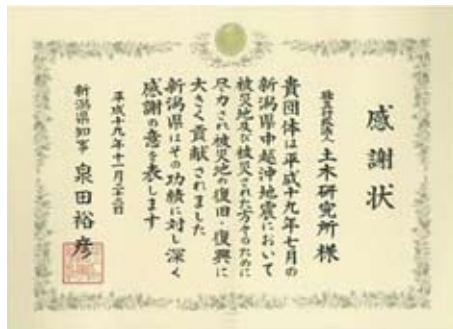 感謝状
独立行政法人 土木研究所 様
貴団体は平成十九年七月の
新潟県中越沖地震において
被災地及び被災された方々のために
尽力され被災地の復旧・復興に
大きく貢献されました
新潟県はその功績に対し深く
感謝の意を表します
平成十九年十一月二十三日
新潟県知事 泉田裕彦